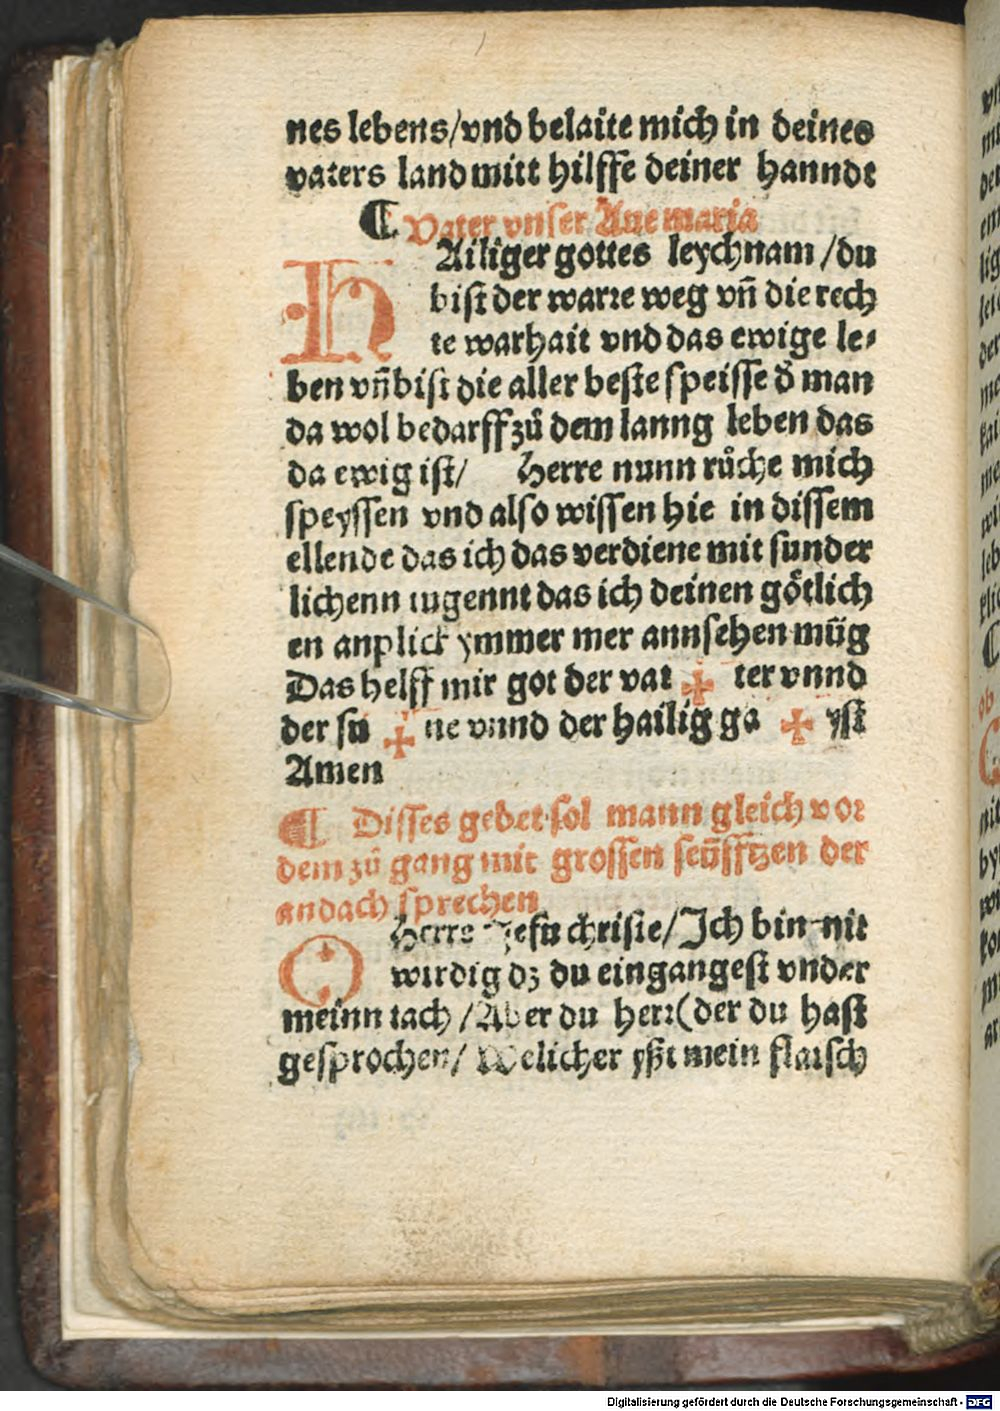 nes lebens/vnd belaite mich in deines
vaters land mitt hilffe deiner hanndt
¶ Vater vnser Aue maria
HAiliger gottes leychnam /du
bist der warre weg vn̄ die rech
te warhait vnd das ewige le⸗
ben vn̄ bist die aller beste speisse d̕ man
da wol bedarff zů dem lanng leben das
da ewig ist/ Herre nunn růche mich
speyssen vnd also wissen hie in dissem
ellende das ich das verdiene mit sunder
lichenn tugennt das ich deinen götlich
en anplick ymmer mer annsehen müg
Das helff mir got der vat ✠ ter vnnd
der su ✠ ne vnnd der hailig ga ✠ yst
Amen
¶ Disses gebet sol mann gleich vor
dem zů gang mit grossen seüfftzen der
andach sprechen
O Herre Jesu christe/Ich bin nit
wirdig dz du eingangest vnder
meinn tach /Aber du herr(der du hast
gesprochen/ Welicher yßt mein flaisch
Digitalisierung gefördert durch die Deutsche Forschungsgemeinschaft - DFG